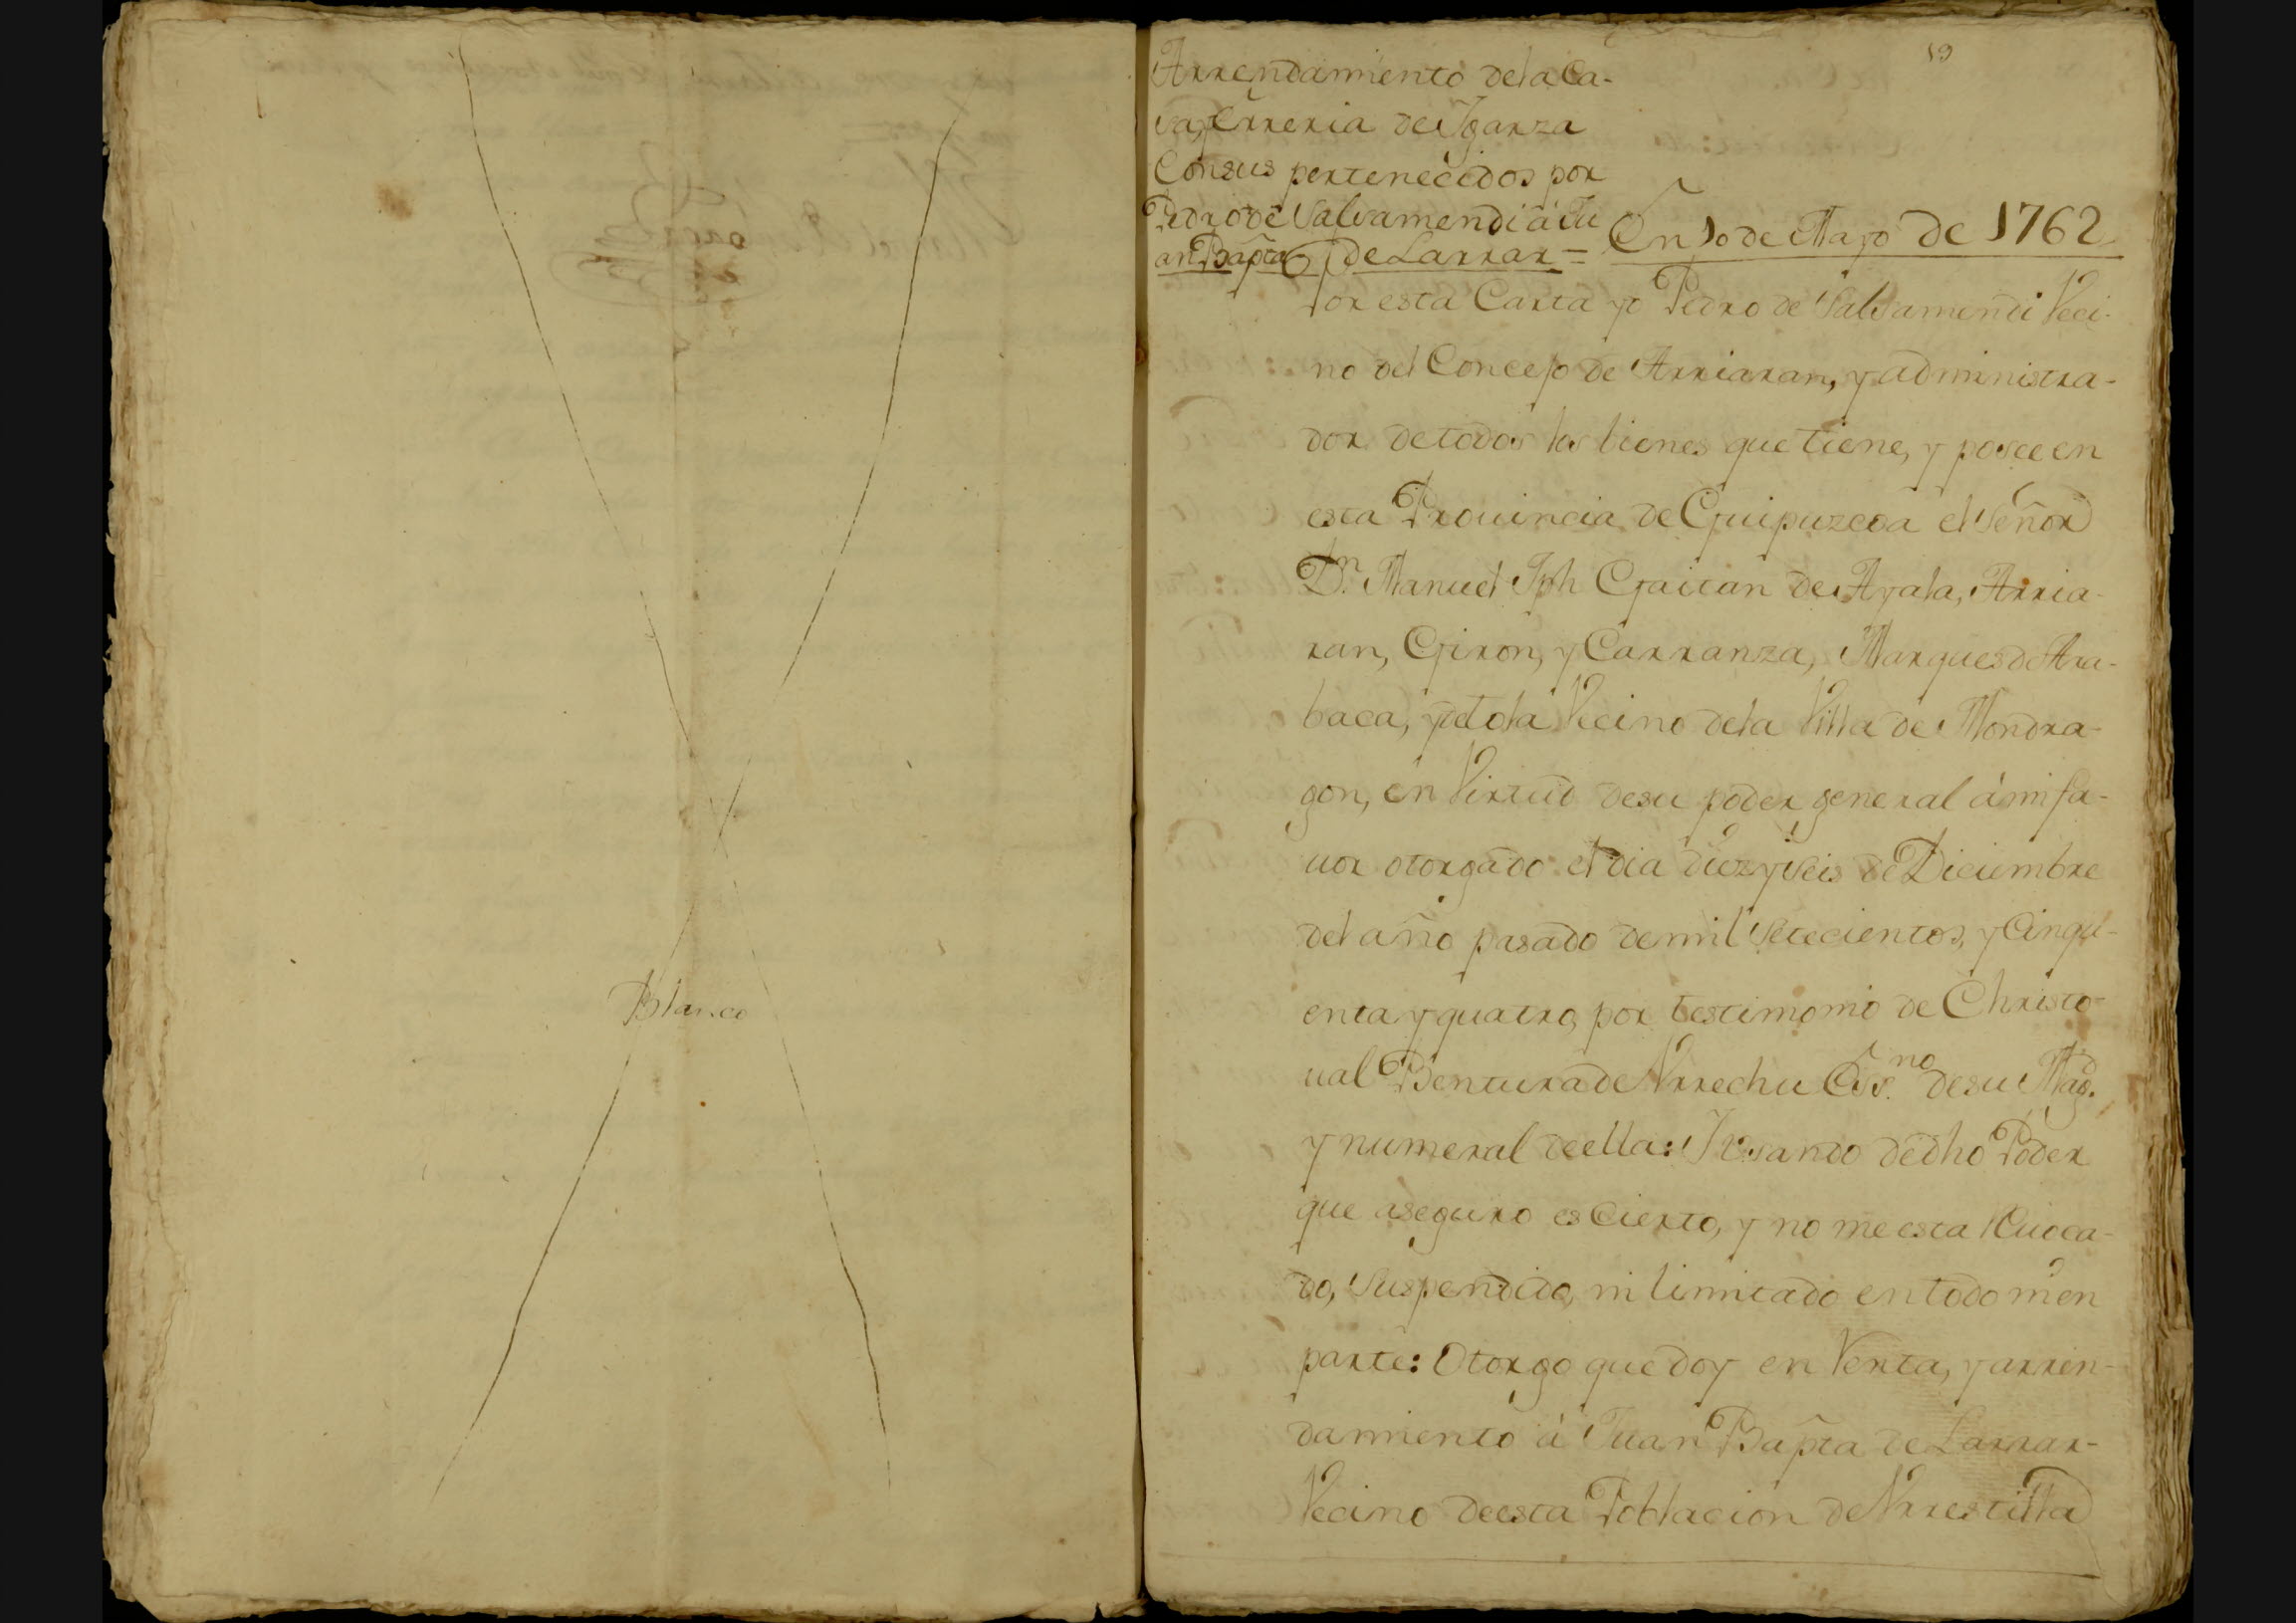 Blanco
59
Arrendamiento dela Ca-
sa, ferreria de Yganza
Consus pertenecidos por
Pedro de Salsamendi á Ju
an Bapta de Larrar =
En 10 de Mayo de 1762
Por esta Carta yo Pedro de Salsamendi Veci-
no del Concejo de Arriaran, y administra-
dor detodos los bienes que tiene, y posee en
esta Prouincia de Guipuzcoa el Señor
Dn. Manuel Jph Gaitan de Ayala, Arria-
ran, Giron, y Carranza, Marques de Ara-
baca, y de Tola Vecino dela Villa de Mondra-
gon, en Virtud desu poder general á mi fa-
uor otorgado el dia diez y seis de Diciembre
del año pasado demil Setecientos, y Cinqu-
enta y quatro, por testimonio de Christo-
ual Bentura de Vrrechu Essno. desu Magd.
y numeral deella: Y vsando de dho Poder
que aseguro es Cierto, y no me esta Reuoca-
do, Suspendido, ni limitado en todo ni en
parte: Otorgo que doy en Renta, y arren-
damiento á Juan Bapta de Larrar-
Vecino deesta Poblacion de Vrrestilla